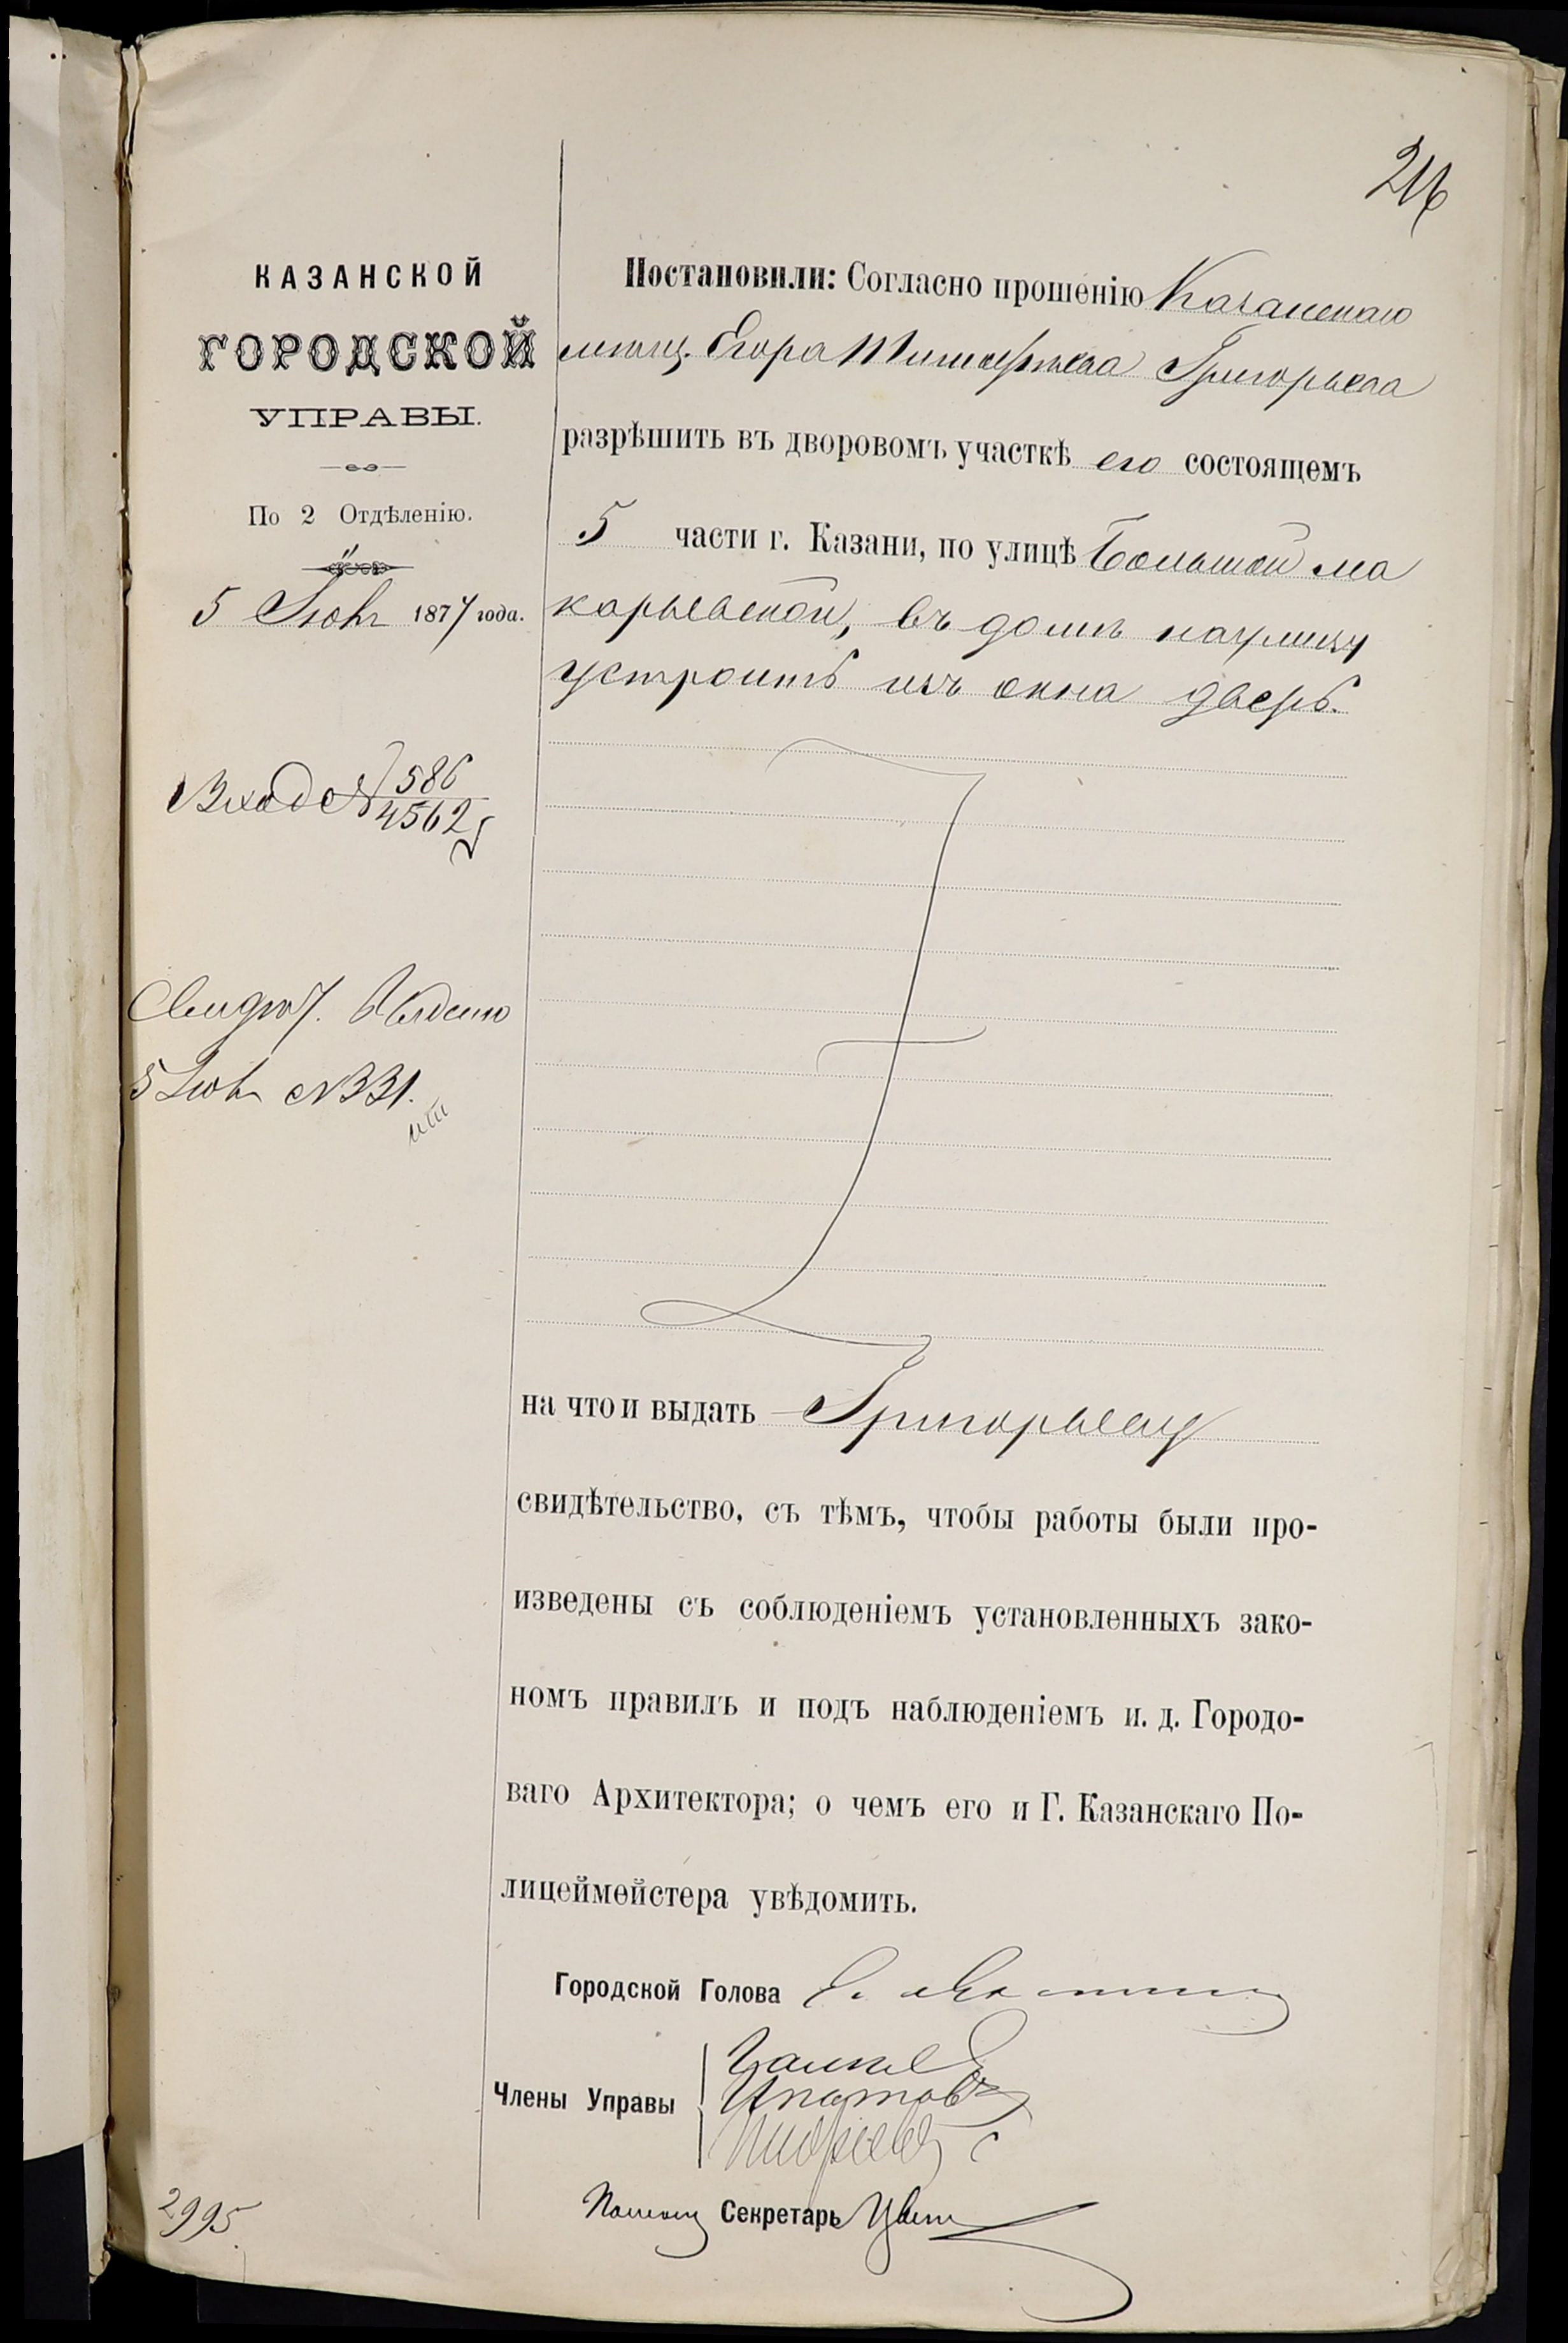 216
КАЗАНСКОЙ
ГОРОДСКОЙ
УПРАВЫ.
По 2 Отдѣленію.
5 Іюня 1877 года.
Вход № 586
4562
5 Іюня № 331.
Постановили: Согласно прошенію Казанскаго
мѣщ. Егора Тимофѣева Григорьева
разрѣшить въ дворовомъ участкѣ его состоящемъ
5 части г. Казани, по улицѣ Большой ма
карьевской, въ домѣ на улицу
устроить изъ окна дверь.
на что и выдать Григорьеву
свидѣтельство, съ тѣмъ, чтобы работы были про-
изведены съ соблюденіемъ установленныхъ зако-
номъ правилъ и подъ наблюденіемъ и. д. Городо-
ваго Архитектора; о чемъ его и Г. Казанскаго По-
лицеймейстера увѣдомить.
Городской Голова
Члены Управы
Ипатовъ
Помощ Секретарь
2995